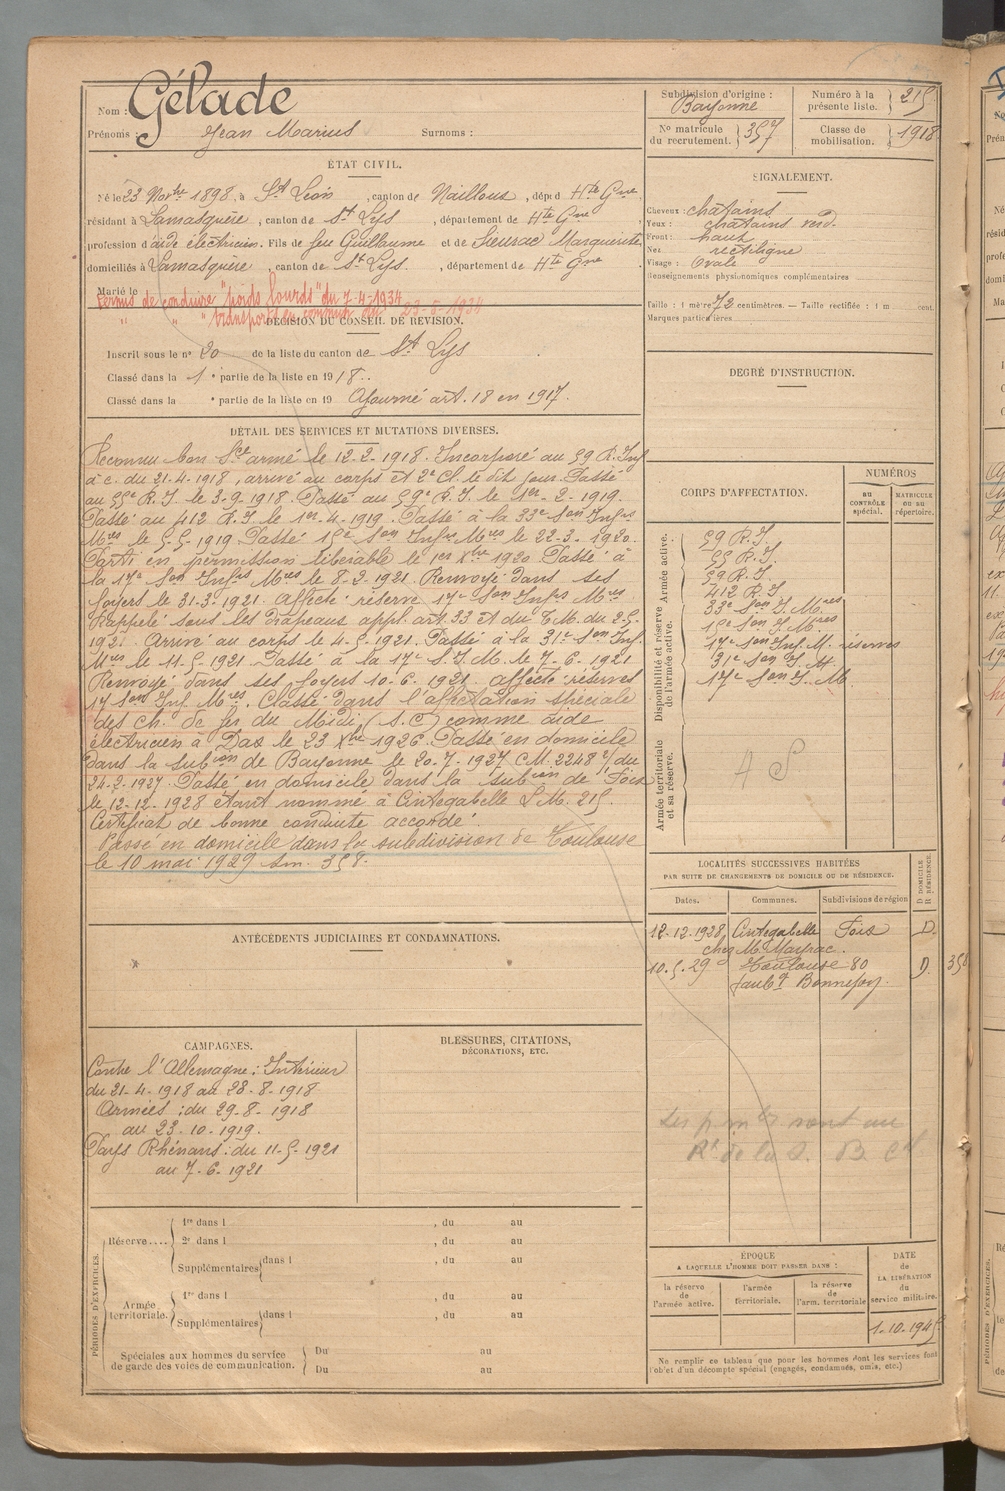 Nom : Gélade
Prénoms : Jean Marius Surnoms :
ÉTAT CIVIL.
Né le 23 Novbre 1898, à St Léon, canton de Nailloux, dépt d Hte Gne
résidant à Lamasquère, canton de St Lys, département de Hte Gne
profession d'aide électricien. Fils de feu Guillaume et de Sieurac Marguerite
domiciliés à Lamasquère, canton de St Lys, département de Hte Gne
Marié le
Permis de conduire "poids lourds" du 7-4-1934
" " "transport en commun du 23-5-1934
DÉCISION DU CONSEIL DE RÉVISION.
Inscrit sous le n° 20 de la liste du canton de St Lys
Classé dans la 1e partie de la liste en 1918..
Classé dans la e partie de la liste en 19 Ajourné art. 18 en 1917.
DÉTAIL DES SERVICES ET MUTATIONS DIVERSES.
Reconnu bon Sce armé le 12-2-1918. Incorporé au 59 R. Inf
à c. du 21-4-1918, arrivé au corps et 2e Cl. le dit jour. Passé
au 55e R.I. le 3-9-1918. Passé au 59e R.I. le 1er-2-1919.
Passé au 412 R.I. le 1er-4-1919. Passé à la 33e Son Infrs
Mres le 5-5-1919. Passé 15e Son Infrs Mres le 22-3-1920.
Parti en permission libérable le 1er Xbre 1920. Passé à
la 17e Son Infrs Mres le 8-2-1921. Renvoyé dans ses
foyers le 31-3-1921. Affecté réserve 17e Son Infrs Mres.
Rappelé sous les drapeaux appl. art. 33 et du T.M. du 2-5-
1921. Arrivé au corps le 4-5-1921. Passé à la 31e Son Inf.
Mres le 11-5-1921. Passé à la 17e S.I.M. le 7-6-1921.
Renvoyé dans ses foyers 10-6-1921. affecté réserves
17 Son Inf. Mres. Classé dans l'affectation spéciale
des Ch. de fer du Midi (S.C) comme aide
électricien à Dax le 23 Xbre 1926. Passé en domicile
dans la subon de Bayonne le 20-7-1927 CM. 2248 2/ du
24-2-1927. Passé en domicile dans la subon de Foix
le 12-12-1928 étant nommé à Cintegabelle L.M. 215.
Certificat de bonne conduite accordé.
Passé en domicile dans la subdivision de Toulouse
le 10 mai 1929 Am. 358.
ANTÉCÉDENTS JUDICIAIRES ET CONDAMNATIONS.
CAMPAGNES.
Contre l'Allemagne : Intérieur
du 21-4-1918 au 28-8-1918
Armées : du 29-8-1918
au 23-10-1919.
Pays Rhénans : du 11-5-1921
au 7-6-1921
BLESSURES, CITATIONS,
DÉCORATIONS, ETC.
PÉRIODES D'EXERCICES.
Réserve....
1re dans l , du au
2e dans l , du au
Supplémentaires dans l , du au
Armée territoriale.
1re dans l , du au
Supplémentaires dans l , du au
Spéciales aux hommes du service
de garde des voies de communication.
Du au
Du au
Subdivision d'origine :
Bayonne
Numéro à la
présente liste. 215
No matricule
du recrutement. 357
Classe de
mobilisation. 1918
SIGNALEMENT.
Cheveux : châtains
Yeux : châtains verd.
Front : haut
Nez rectiligne
Visage : Ovale
Renseignements physionomiques complémentaires
Taille : 1 mètre 72 centimètres. — Taille rectifiée : 1 m cent.
Marques particulières
DEGRÉ D'INSTRUCTION.
CORPS D'AFFECTATION.
NUMÉROS
AU CONTRÔLE spécial.
MATRICULE OU AU répertoire.
Armée active.
59 R.I.
55 R.I.
59 R.I.
412 R.I
33e Son I. Mres
15e Son I. Mres
Disponibilité et réserve
de l'armée active.
17e Son Inf. M. réserves
31e Son I. M.
17e Son I. M
Armée territoriale
et sa réserve.
A S
LOCALITÉS SUCCESSIVES HABITÉES
PAR SUITE DE CHANGEMENTS DE DOMICILE OU DE RÉSIDENCE.
Dates. Communes. Subdivisions de région D DOMICILE R RÉSIDENCE.
12-12-1928 Cintegabelle Foix D.
chez M. Marrac.
10-5-29 Toulouse 80 D. 358
faubg Bonnefoy.
Les pmts sont au
Rt de la S. B. Cal
ÉPOQUE
A LAQUELLE L'HOMME DOIT PASSER DANS :
la réserve
de
l'armée active.
l'armée
territoriale.
la réserve
de
l'arm. territoriale
DATE
de
LA LIBÉRATION
du
service militaire.
1-10-1945
Ne remplir ce tableau que pour les hommes dont les services font
l'objet d'un décompte spécial (engagés, condamnés, omis, etc.)